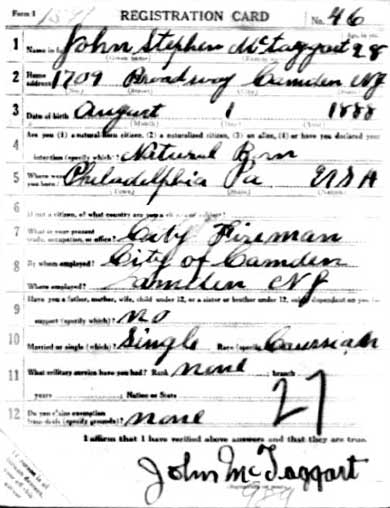 Form 1 REGISTRATION CARD No. 46
1 Name in full John Stephen McTaggart 28
2 Home address 1709 Broadway Camden NJ
3 Date of birth August 1 1888
Are you (1) a natural-born citizen, (2) a naturalized citizen, (3) an alien, (4) or have you declared your
4 intention (specify which)? Natural Born
5 Where were you born? Philadelphia Pa USA
(Town) (State) (Nation)
6 If not a citizen, of what country are you a citizen or subject?
7 What is your present trade, occupation, or office? City Fireman
8 By whom employed? City of Camden
Where employed? Camden NJ
Have you a father, mother, wife, child under 12, or a sister or brother under 12, solely dependent on you for
9 support (specify which)? no
10 Married or single (which)? Single Race (specify which)?
11 What military service have you had? Rank none branch
years Nation or State 27
12 Do you claim exemption from draft (specify grounds)? none
I affirm that I have verified above answers and that they are true.
John McTaggart